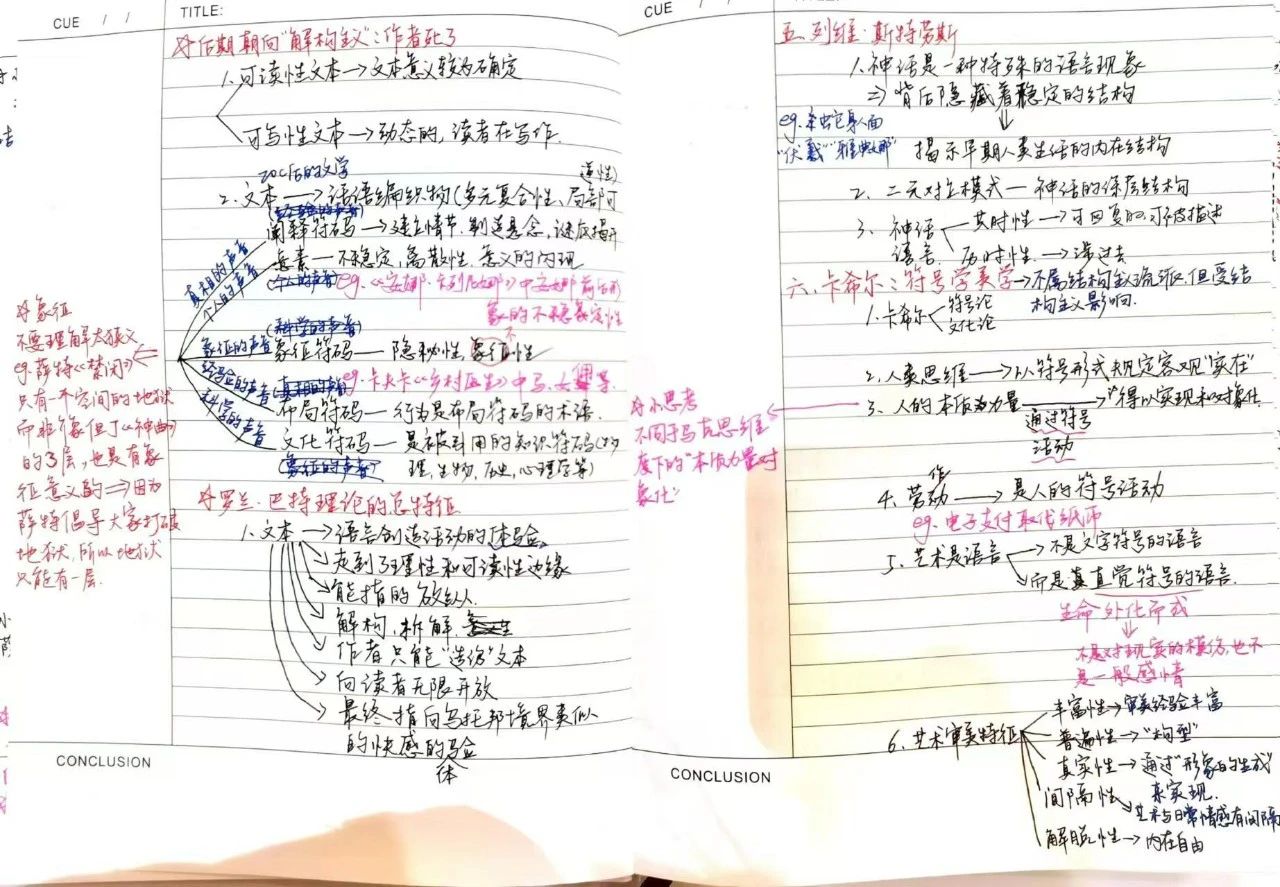 CUE / /
TITLE:
☆后期朝向"解构主义":作者死了
1.可读性文本→文本意义较为确定
可写性文本→动态的,读者在写作.
20C后的文学
2.文本→话语编织物(多元复合性、局部可
逆性)
阐释符码→建立情节、制造悬念,谜底揭开
真相的声音
意素—不稳定,离散性,意义的闪现
个人的声音
(个人的声音)
eg.《安娜·卡列尼娜》中安娜前后形
象的不稳定性
(科学的声音)
象征的声音
象征符码—隐秘性,象征性
不
经验的声音
(真相的声音)
eg.卡夫卡《乡村医生》中马、女
布局符码—行为是布局符码的术语.
科学的声音
文化符码—是被引用的知识符码(物
理,生物,历史,心理学等)
(象征的声音)
☆象征
不要理解太狭义
eg.萨特《禁闭》
只有一平空间的地狱
而非像但丁《神曲》
的3层,也是有象
征意义的⇒因为
萨特倡导大家打破
地狱,所以地狱
只能有一层.
☆罗兰·巴特理论的总特征
1.文本→语言创造活动的体验
走到了理性和可读性边缘
能指的放纵
解构,拆解.
作者只能"造访"文本
向读者无限开放
最终指向乌托邦境界类似
的快感的验
体
CONCLUSION
CUE / /
五.列维·斯特劳斯
1.神话是一种特殊的语言现象
⇒背后隐藏着稳定的结构
eg.牵蛇身人面
"伏羲""雅典娜"
揭示早期人类生活的内在结构
2.二元对立模式—神话的深层结构
3.神话
语言
共时性→可回复的,可被描述
历时性→讲过去
六.卡希尔:符号学美学→不属结构主义流派,但受结
构主义影响.
1.卡希尔
符号论
文化论
2.人类思维→以符号形式规定客观"实在"
3.人的本质力量→得以实现和对象化
通过符号
活动
☆小思考
不同于马克思维
度下的"本质力量对
象化"
作
4.劳动→是人的符号活动
eg.电子支付取代纸币
5.艺术是语言
→不是文字符号的语言
→而是直觉符号的语言.
生命外化形式
不是对现实的模仿,也不
是一般感情
6.艺术审美特征
丰富性→审美经验丰富
普遍性→"构型"
真实性→通过"形象的生成"
来实现.
间隔性→艺术与日常情感有间隔
解脱性→内在自由
CONCLUSION